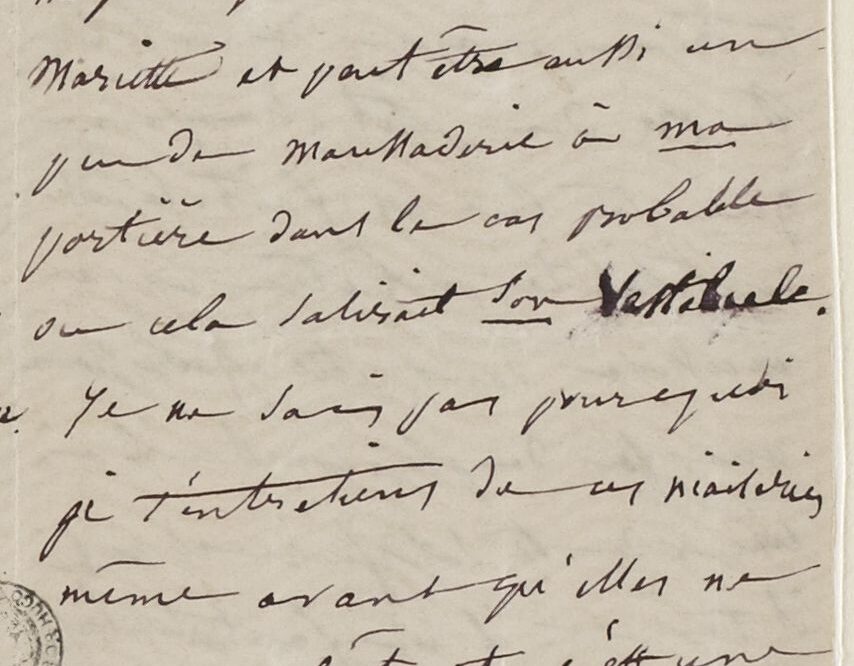 Mariette et peut être aussi un
peu de maussaderie à ma
portière dans le cas probable
où cela salirait son vestibule.
Je ne sais pas pourquoi
je t'entretiens de ces niaiseries
même avant qu'elles ne
c'est une